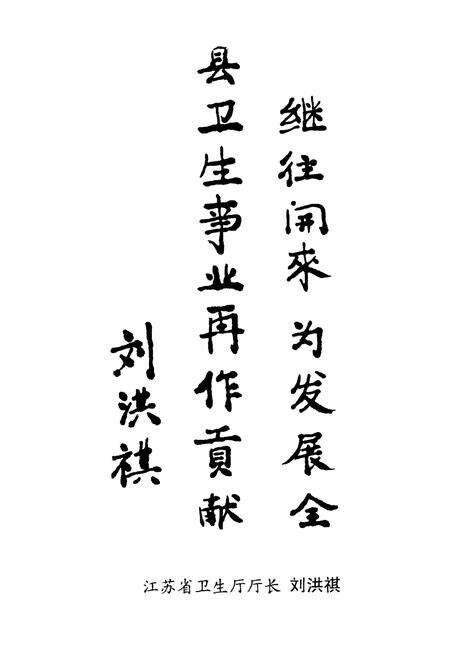 继往開來 为发展全
县卫生事业再作貢献
刘洪祺
江苏省卫生厅厅长 刘洪祺